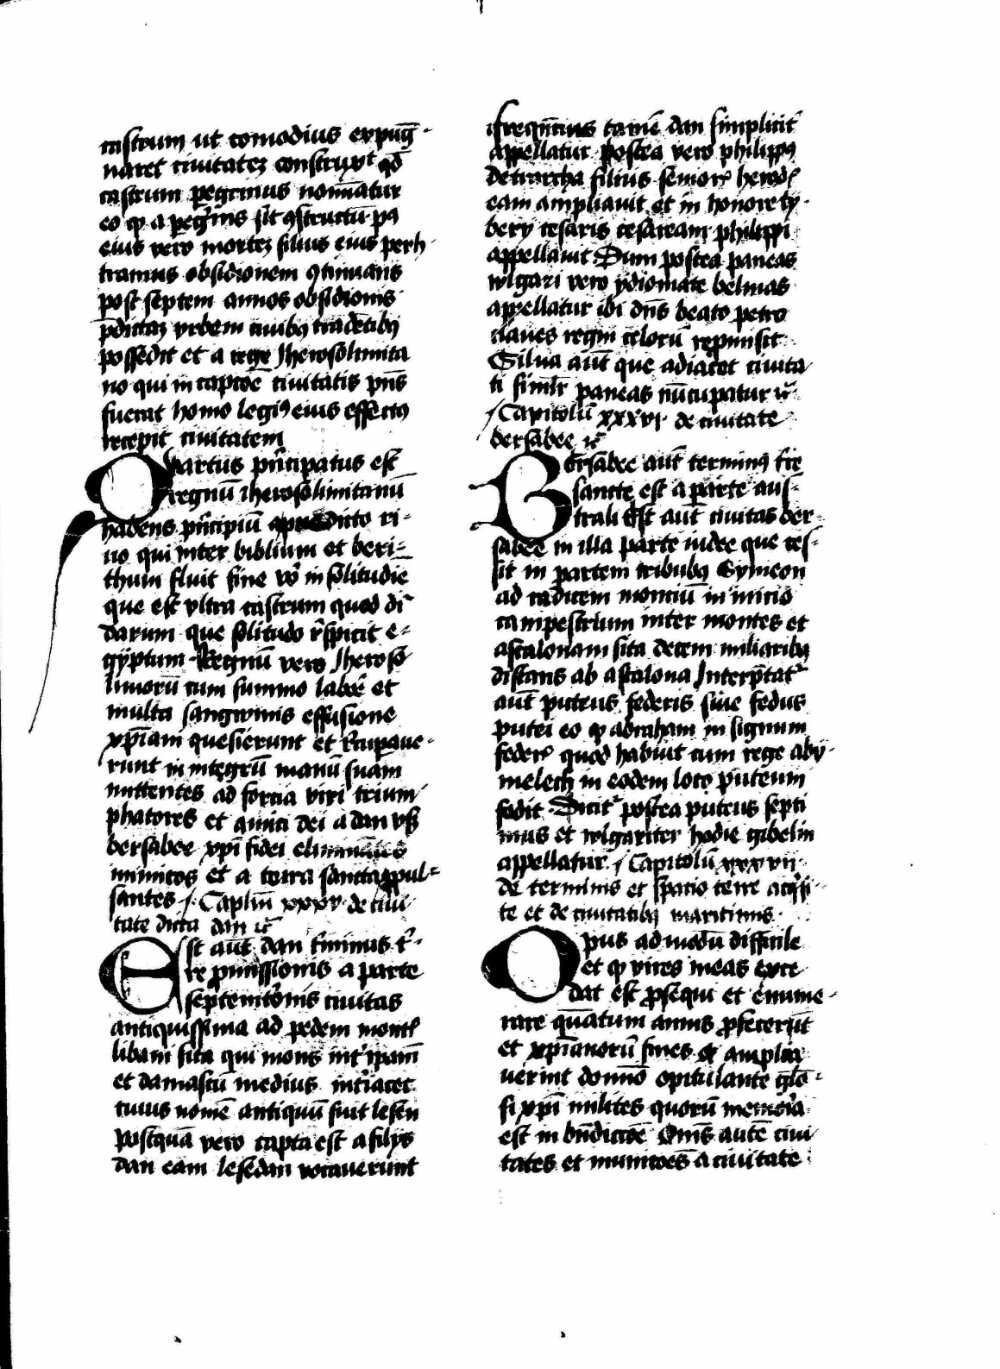 castrum ut comodius expug-
naret ciuitatez construxit qd̄
castrum pegrinus nomīatur
eo qͥ a pegͥnis sit ꝯstructū pꝰ
eius vero mortez filius eius perh
tramus obsidionem ꝯtinuans
post septem annos obsidionis
p̄dictaz vrbem ciuibꝰ tradētibꝰ
possedit et a rege Jherosolimita
no qui in captōe ciuitatis p̄ns
fuerat homo legiꝰ eius effectꝰ
recepit ciuitatem
Qvartus pͥncipatus est
regnū iherosolimitanū
habens pͥncipiū a predicto ri-
uo qui inter biblium et beri-
thum fluit fine vͦ in solitudie
que est vltra castrum quod di
darum que solitudo rͤspicit e-
gyptum Regnū vero Jheroso
limorū cum summo labōe et
multa sangwinis effusione
xp̄iani quesierunt et rͤcupaue-
runt in integrū manū suam
mittentes ad fortia viri trium
phatores et amici dei a dan vsqꝫ
bersabee xp̄i fidei eliminātes
inimicos et a terra sancta ꝓpul=
santes / Caplm̄ xxxv de ciui
tate dicta dan ꝛc̄
Est aūt dan tͥminus tͤ-
re pͥmissionis a parte
septemtͥonis ciuitas
antiquissima ad pedem montꝭ
libani sita qui mons intͥ ipam̄
et damascū medius intͥiacet
cuius nomē antiquū fuit lesen
postquā vero capta est a filijs
dan eam lesedan vocauerunt
ifreqn̄cius tamē dan simplicitͥ
appellatur postea vero philippꝰ
detrarcha filius senior̄ herodꝭ
eam ampliauit et in honore ty-
bery cesaris cesaream philippi
appellauit Dum postea paneas
wlgari vero ydiomate belinas
appellatur ibi dn̄s beato petro
claues regni celorū repmisit
Silua aūt que adiacet ciuita
ti simlr̄ paneas nūcupatur ꝛc̄
/ Capitolū xxxvi de ciuitate
bersabee ꝛc̄
Bersabee aūt terminꝰ tre
sancte est a parte aus-
trali Est aūt ciuitas ber-
sabee in illa parte iudee que ces-
sit in partem tribubꝰ Symeon
ad radicem montiū in inicio
campestrium inter montes et
ascalonam sita decem miliaribꝰ
distans ab ascalona Interp̄tatͬ
aūt puteus federis siue fedus
putei eo qͥ abraham in signum
federꝭ quod habuit cum rege aby
melech in eodem loco puteum
fodit Dicitͬ postea puteus septi
mus et wlgariter hodie gibelin
appellatur / Capitolū xxxvii
de terminis et spatio terre acqͥsi
te et de ciuitatibꝰ maritimis
Opus ad modū difficile
et qͥ vires meas exce
dat est ꝓsequi et enume-
rare quātum annis ꝓfecerūt
et xp̄ianorū fines et amplia
uerint domno opitulante glo-
si xp̄i milites quorū memoria
est in bn̄dictōe Om̄s autē ciui
tates et municōes a ciuitate